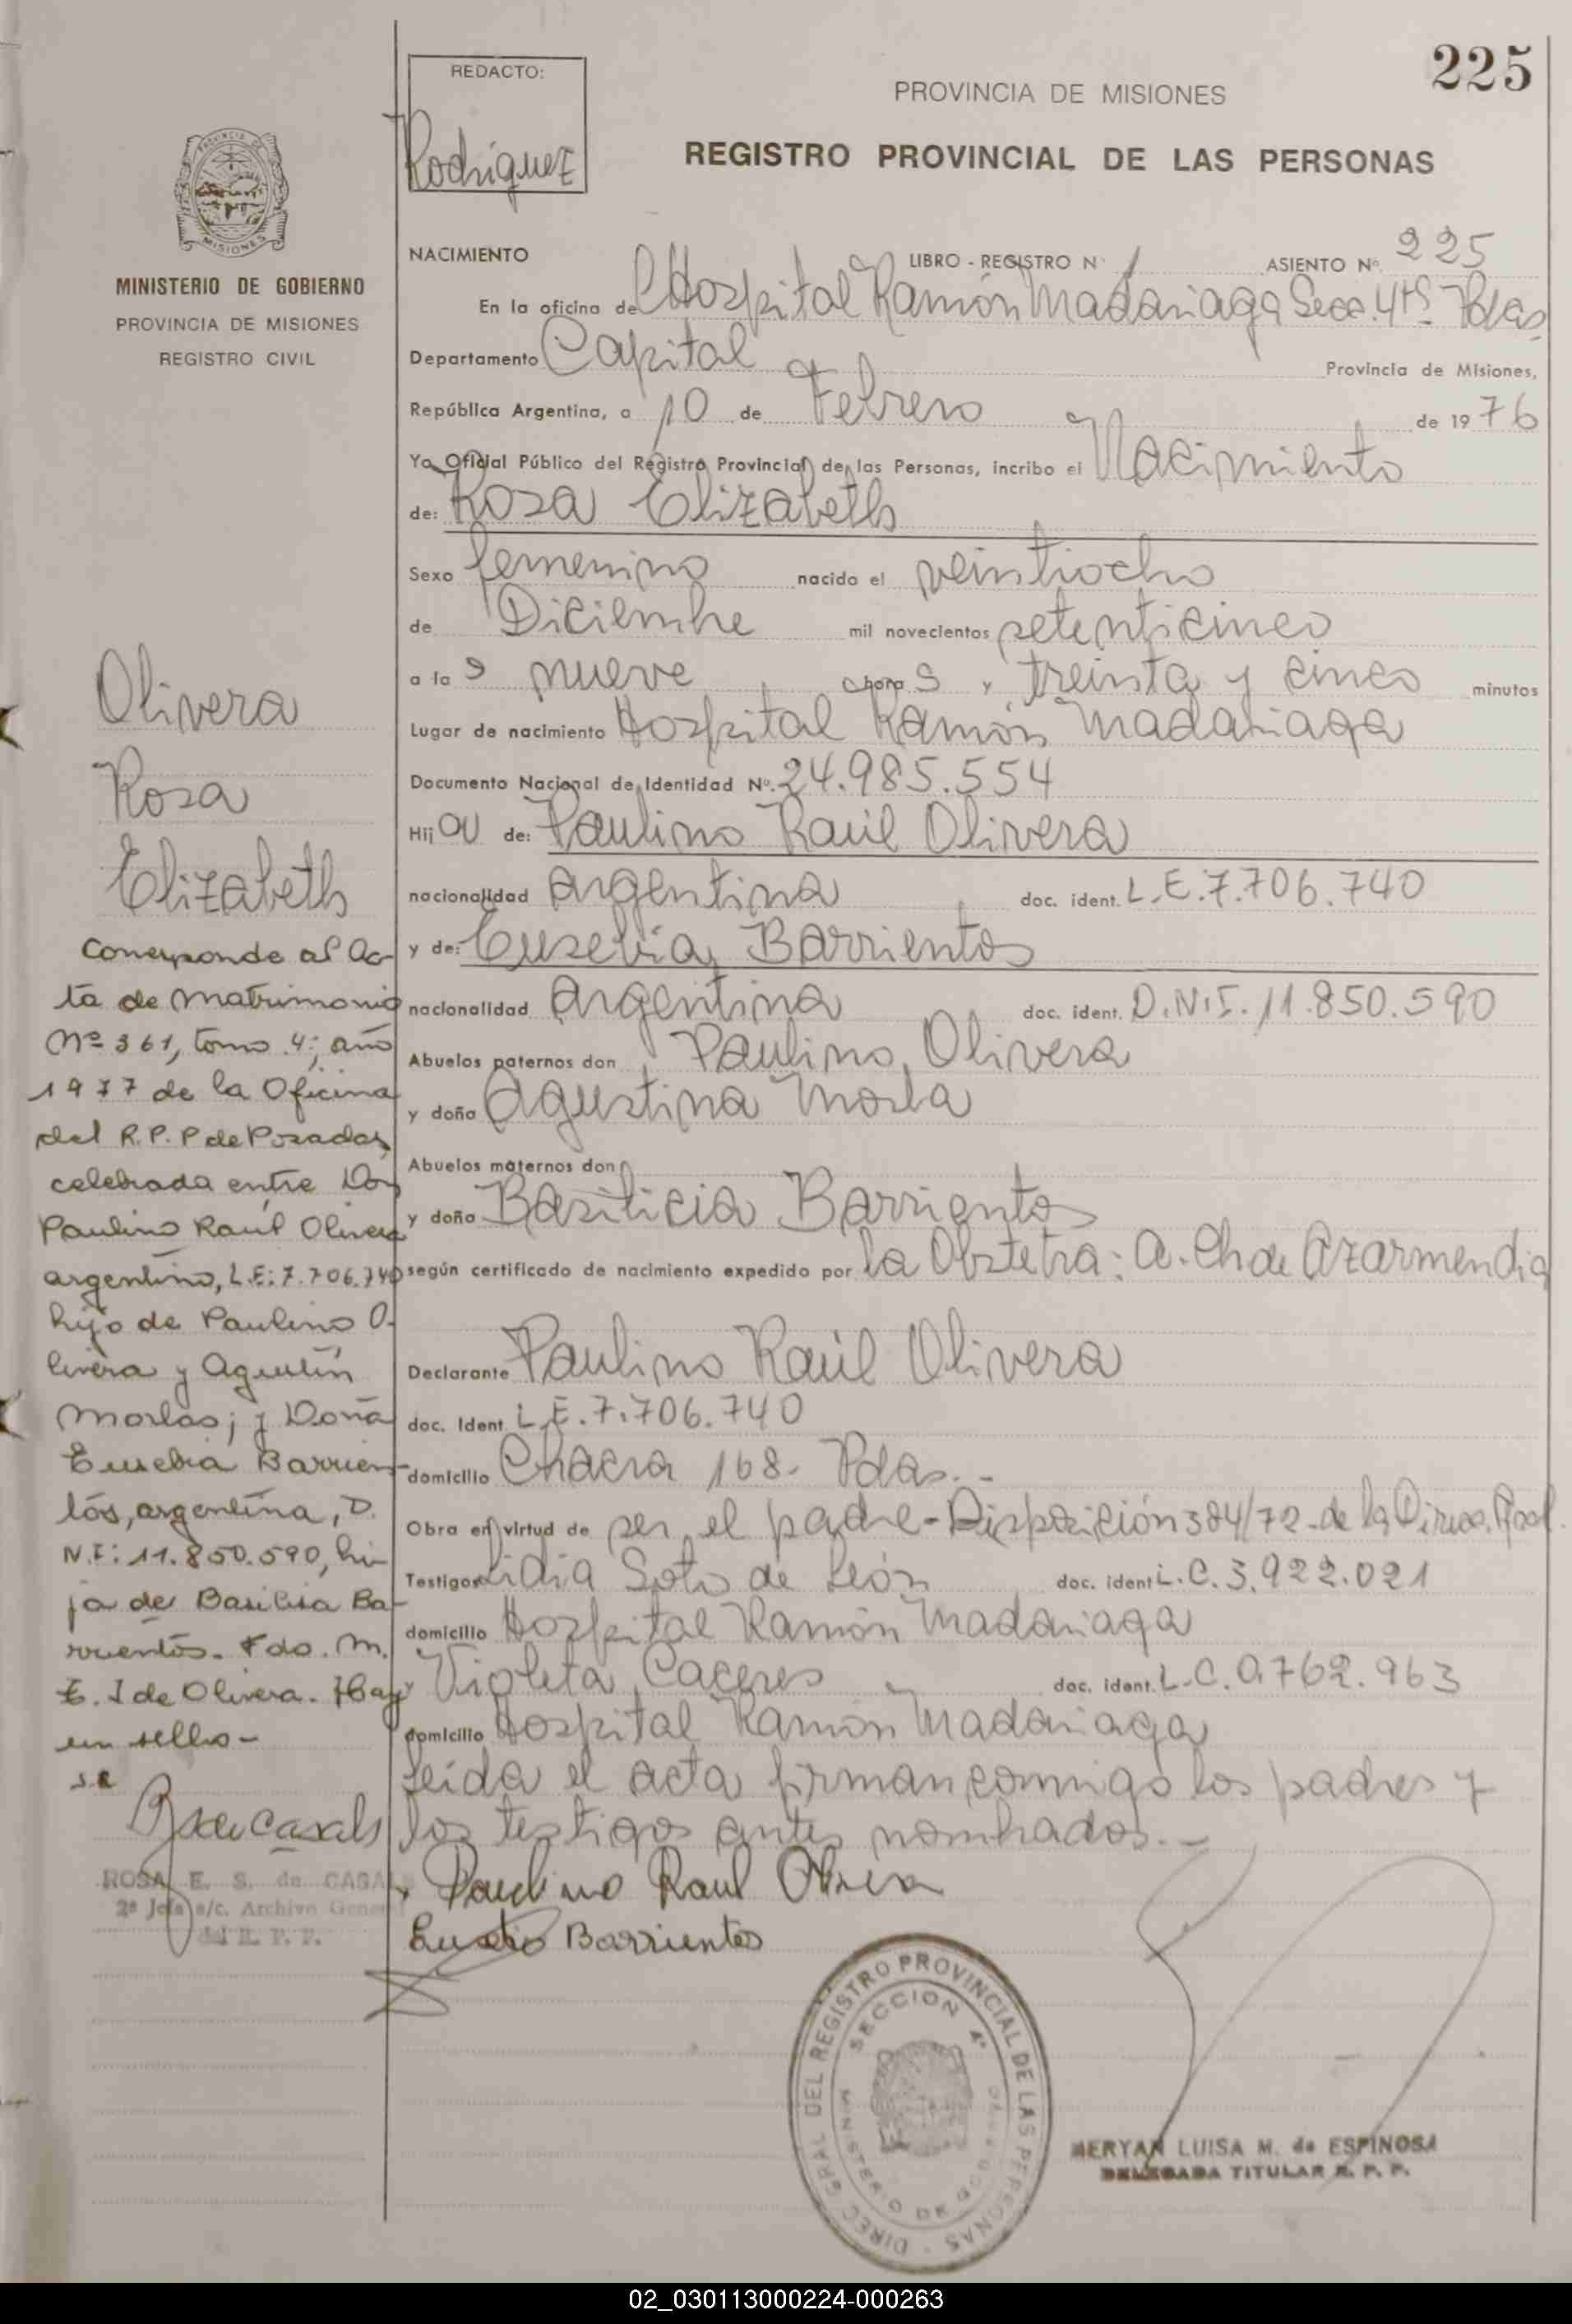 225
REDACTO:
Rodriguez
PROVINCIA DE MISIONES
REGISTRO PROVINCIAL DE LAS PERSONAS
PROVINCIA DE
MISIONES
MINISTERIO DE GOBIERNO
PROVINCIA DE MISIONES
REGISTRO CIVIL
NACIMIENTO LIBRO - REGISTRO Nº 1 ASIENTO Nº. 225
En la oficina del Hospital Ramón Madariaga Secc. 4ta. Pdas.
Departamento Capital Provincia de Misiones,
República Argentina, a 10 de Febrero de 1976
Yo Oficial Público del Registro Provincial de las Personas, incribo el Nacimiento
de: Rosa Elizabeth
Sexo femenino nacido el veintiocho
de Diciembre mil novecientos setenticinco
a las nueve hora s y treinta y cinco minutos
Lugar de nacimiento Hospital Ramón Madariaga
Documento Nacional de Identidad Nº. 24.985.554
Hija de: Paulino Raúl Olivera
nacionalidad argentina doc. ident. L.E.7.706.740
y de: Eusebia Barrientos
nacionalidad argentina doc. ident. D.N.I. 11.850.590
Abuelos paternos don Paulino Olivera
y doña Agustina Morla
Abuelos maternos don
y doña Basilicia Barrientos
según certificado de nacimiento expedido por la Obstetra: A. Ch de Azarmendia
Declarante Paulino Raúl Olivera
doc. Ident. L.E.7.706.740
domicilio Chacra 168. Pdas.-
Obra en virtud de ser el padre-Disposición 384/72-de la Direcc. Gral.
Testigos Lidia Soto de León doc. ident L.C.3.922.021
domicilio Hospital Ramón Madariaga
y Violeta Caceres doc. ident. L.C.0.762.963
domicilio Hospital Ramón Madariaga
Leída el acta firman conmigo los padres y
los testigos antes nombrados.-
Paulino Raul Olivera
Eusebia Barrientos
Olivera
Rosa
Elizabeth
Corresponde al Ac-
ta de Matrimonio
Nº 361, tomo 4º, año
1977 de la Oficina
del R.P.P de Posadas,
celebrada entre Don
Paulino Raúl Olivera
argentino, L.E: 7.706.740
hijo de Paulino O-
livera y Agustín
Morlas; y Doña
Eusebia Barrien-
tos, argentina, D.
N.I: 11.850.590, hi-
ja de Basilisa Ba-
rrientos. Fdo. M.
E. I de Olivera. Hay
un sello-
S.R
R S de Casals
ROSA E. S. de CASALS
2ª Jefa a/c. Archivo General
del R. P. P.
DIREC. GRAL DEL REGISTRO PROVINCIAL DE LAS PERSONAS
SECCION 4ª
MINISTERIO DE GOBIERNO
MERYAN LUISA M. de ESPINOSA
DELEGADA TITULAR R. P. P.
02_030113000224-000263